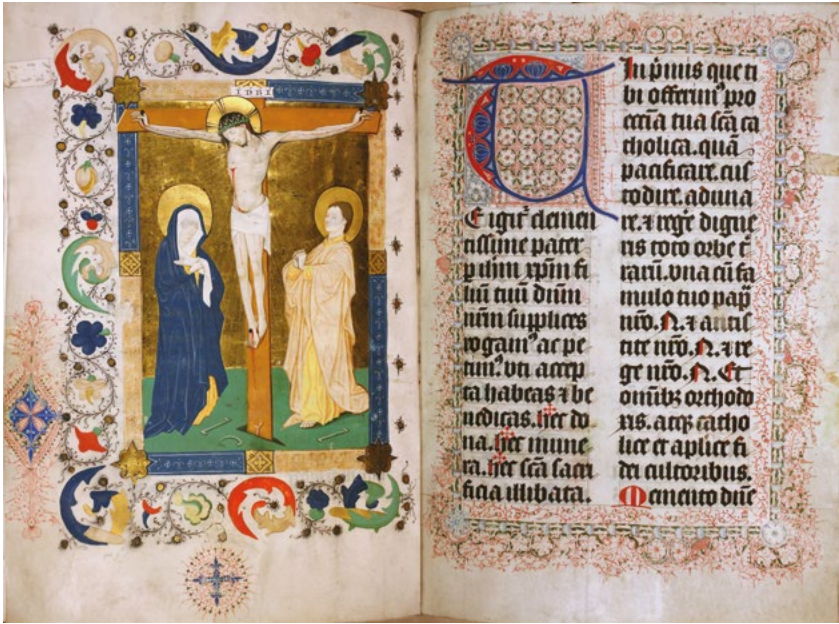 INRI
T
E igit᷑ clemen
tissime pater
p ihm xpm fi
lium tuū dūm
nr̄m supplices
rogamꝰ ac pe
timꝰ. vti accep
ta habeas ⁊ be
nedicas. hec ✠ do
na. hec ✠ mune
ra. hec ✠ scā sacri
ficia illibata.
In p̄mis que ti
bi offerimꝰ pro
eccīa tua scā ca
tholica. quā
pacificare. cus
todire. aduna
re. ⁊ rege᷑ digne
ris toto orbe t̄
rarū. vna cū fa
mulo tuo papa
nr̄o. N. ⁊ antis
tite nr̄o. N. ⁊ re
ge nr̄o. N. Et
omībꝫ orthodo
xis. atqꝫ catho
lice et aplice fi
dei cultoribus.
Memento dn̄e